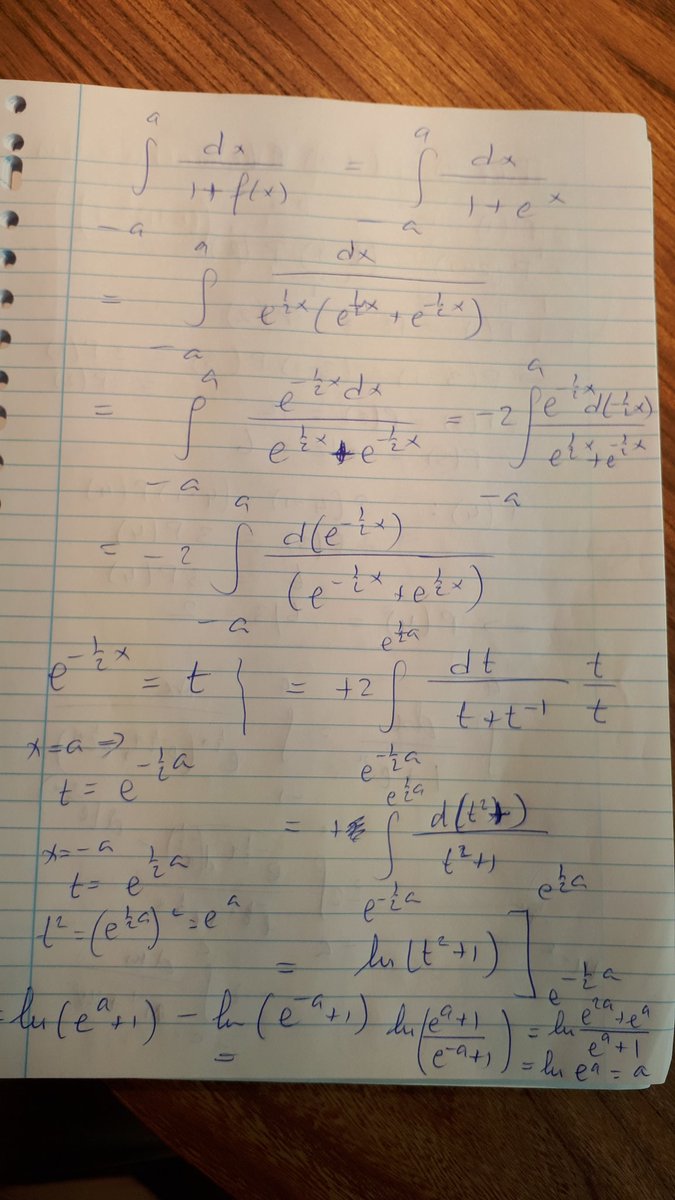 ∫_{-a}^{a} dx/(1+f(x)) = ∫_{-a}^{a} dx/(1+e^x)
= ∫_{-a}^{a} dx/(e^{½x}(e^{½x}+e^{-½x}))
= ∫_{-a}^{a} e^{-½x}dx/(e^{½x}+e^{-½x}) = -2∫_{-a}^{a} e^{-½x}d(-½x)/(e^{½x}+e^{-½x})
= -2 ∫_{-a}^{a} d(e^{-½x})/(e^{-½x}+e^{½x})
e^{-½x} = t } = +2 ∫_{e^{-½a}}^{e^{½a}} dt/(t+t^{-1}) t/t
x=a ⇒
t = e^{-½a}
= + ∫_{e^{-½a}}^{e^{½a}} d(t²+)/(t²+1)
x=-a
t= e^{½a}
t²=(e^{½a})²=e^a
= ln(t²+1)]_{e^{-½a}}^{e^{½a}}
=ln(e^a+1) - ln(e^{-a}+1)
= ln((e^a+1)/(e^{-a}+1)) = ln (e^{2a}+e^a)/(e^a+1)
= ln e^a = a